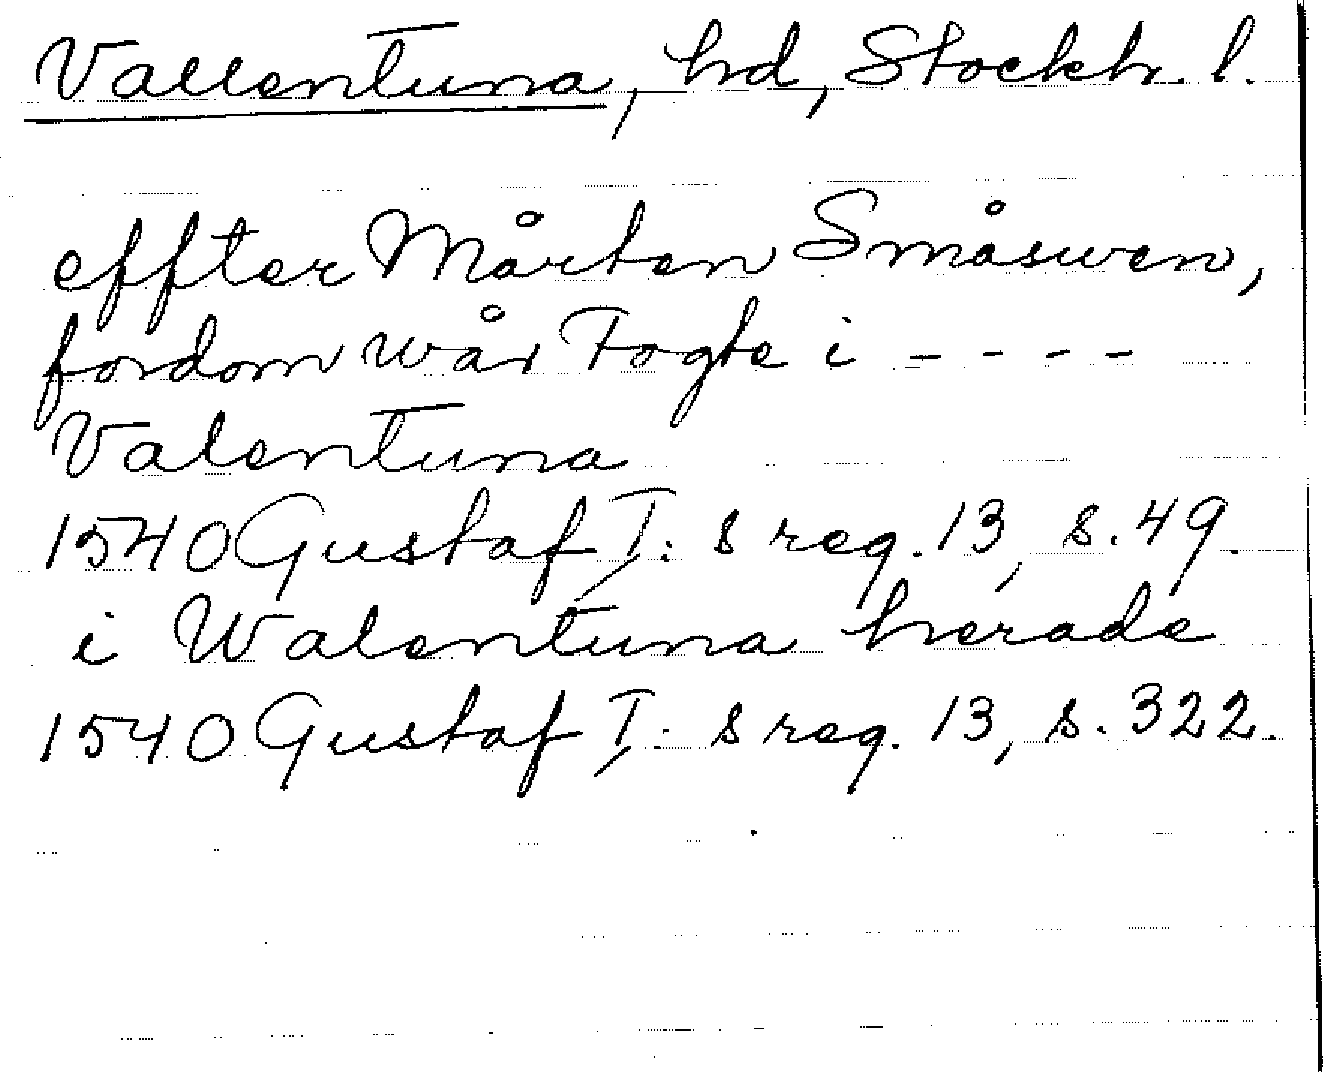 Vallentuna, hd, Stockh. l.
effter Mårten Småswen,
fordom wår Fogte i - - - -
Valentuna
1540 Gustaf I: s reg. 13, s. 49.
i Walentuna herade
1540 Gustaf I: s reg. 13, s. 322.